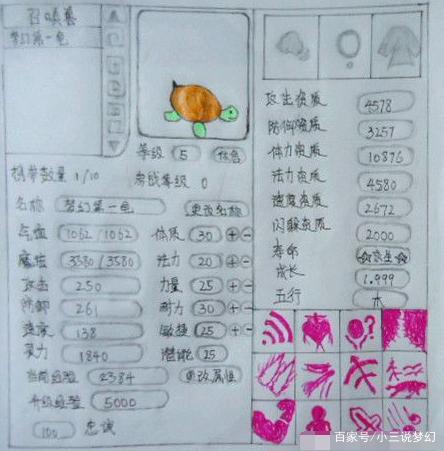 召唤兽
梦幻第一龟
等级 5 休息
携带数量 1/10
参战等级 0
名称 梦幻第一龟 更改名称
气血 1062/1062 体质 30 + -
魔法 3580/3580 法力 20 + -
攻击 250 力量 25 + -
防御 261 耐力 30 + -
速度 138 敏捷 25 + -
灵力 1840 潜能 25
当前经验 2384 更改属性
升级经验 5000
100 忠诚
攻击资质 4578
防御资质 3257
体力资质 10876
法力资质 4580
速度资质 2672
闪躲资质 2000
寿命 ☆永生☆
成长 1.999
五行 木
百家号/小三说梦幻